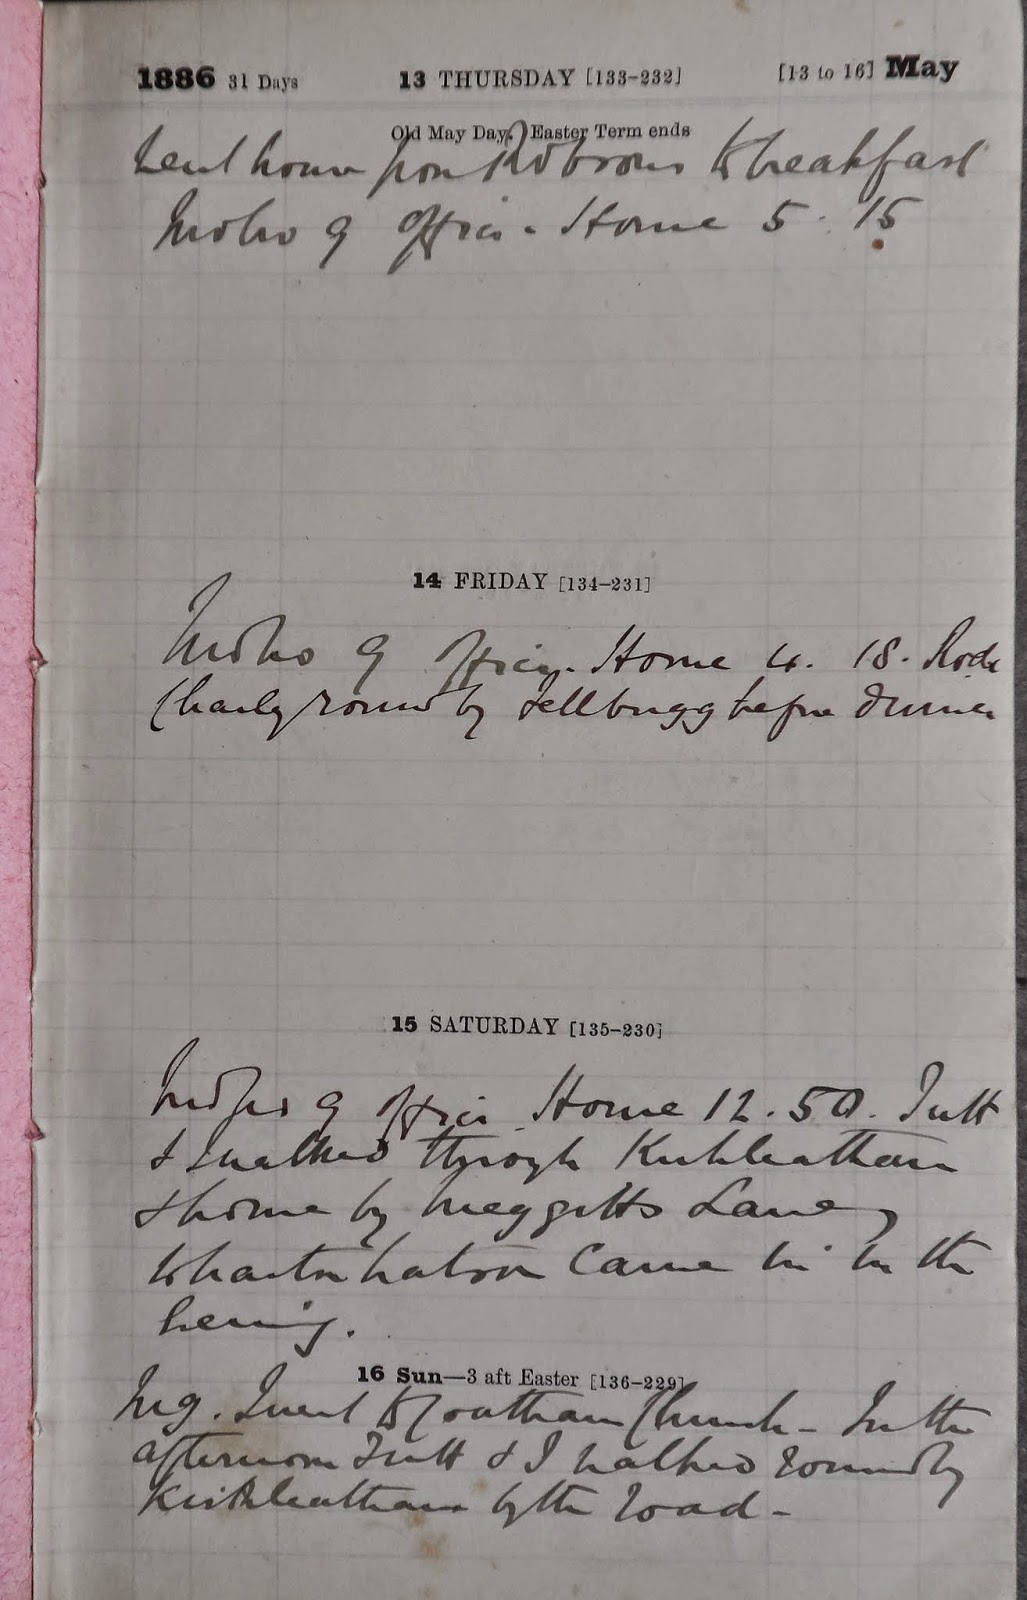 1886 31 Days 13 THURSDAY [133-232] [13 to 16] May
Old May Day. Easter Term ends
Went home from to breakfast
9 Office. Home 5.15
14 FRIDAY [134-231]
9 Office. Home 4.18. Rode
Charley round by Fellbrigg before dinner
15 SATURDAY [135-230]
9 Office. Home 12.50. Tutt
& I walked through Kirkleatham
& home by Meggitts Lane,
Wharton Watson came in in the
Evening.
16 Sun—3 aft Easter [136-229]
Mg. I went to Coatham Church - In the
afternoon Tutt & I walked round by
Kirkleatham by the road -